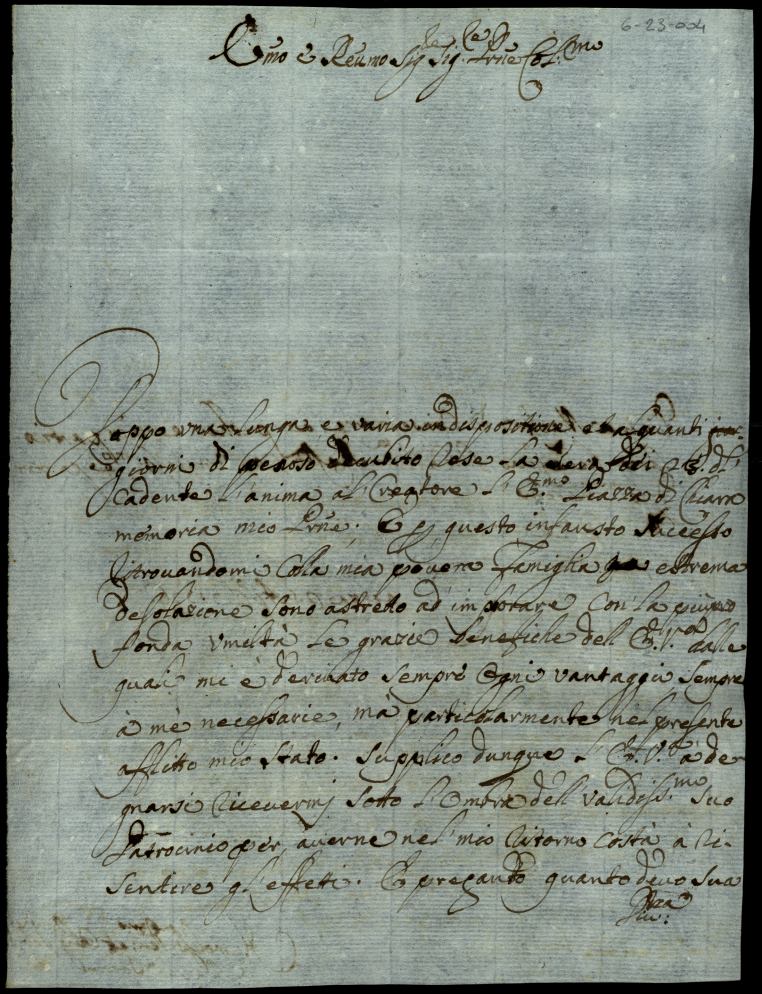 6-23-004
Emo e Reumo Sig.re Sig.re Prne Col.mo
Doppo una lunga, e varia indispositione, e alquanti
giorni di penoso decubito rese la sera
cadente l'anima al Creatore l'E.mo Piazza di Chiara
memoria mio Prne. E p questo infausto successo
ritrovandomi colla mia povera famiglia estrema
desolazione sono astretto ad implorare con la più pro
fonda umiltà le grazie benefiche dell'E.V.ra dalle
quali mi è derivato sempre ogni vantaggio sempre
à mè necessarie, mà particolarmente nel presente
afflitto mio stato. Supplico dunque l'E.V.ra à de
gnarsi ricevermi sotto l'ombra dell validiss.mo suo
Patrocinio per, averne nel mio ritorno costà à ri-
sentire gl'effetti. E pregando quanto devo sua